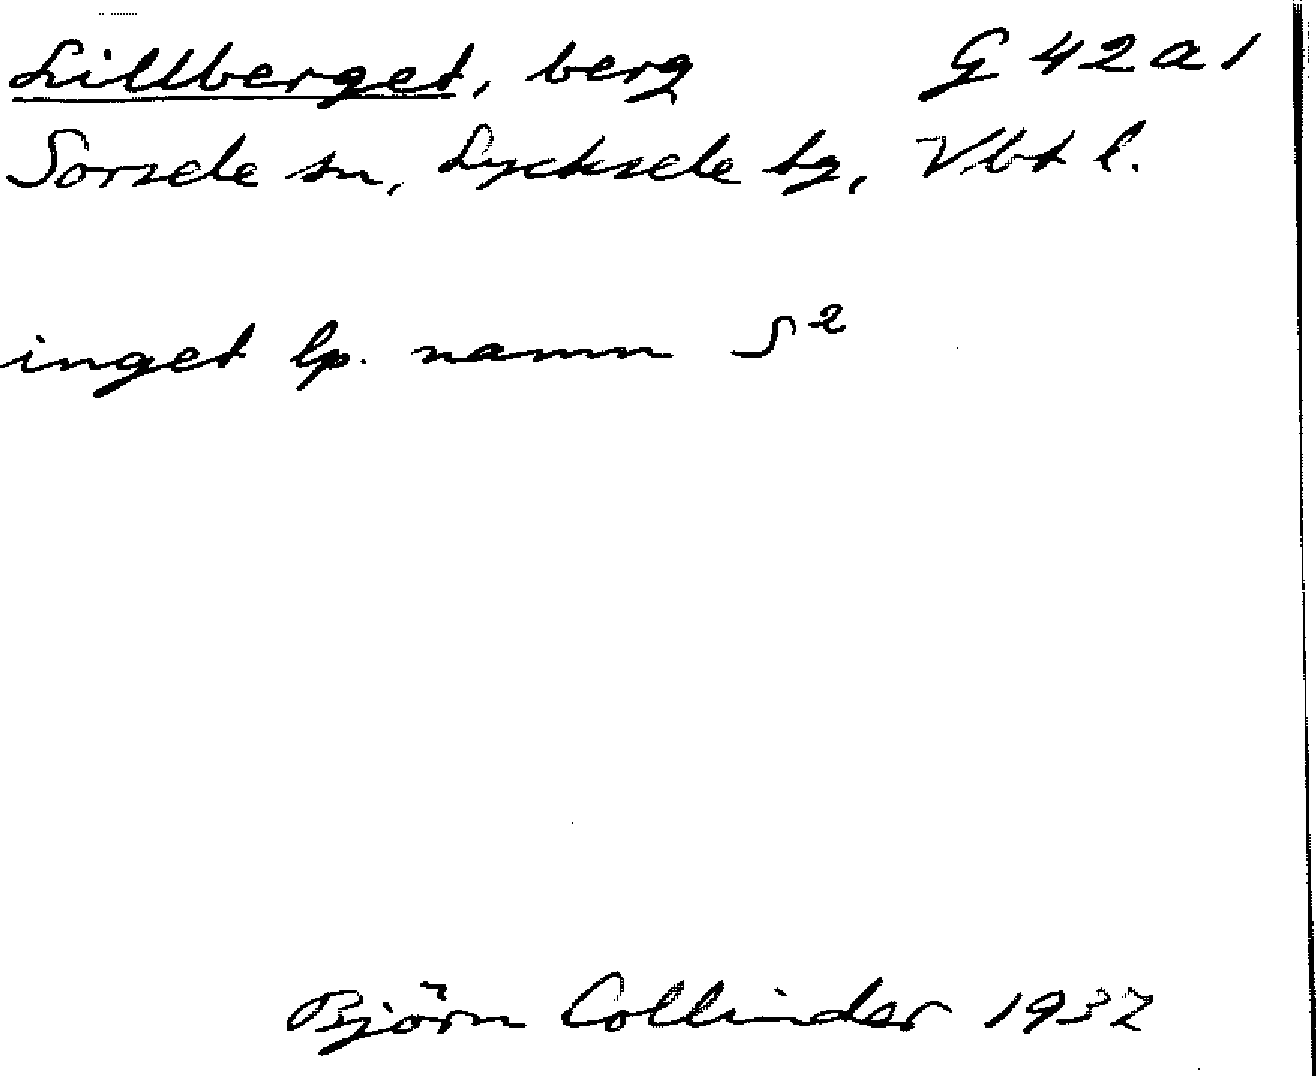 Lillberget, berg G 42 a 1
Sorsele sn, Lycksele tg, Vbt l.
inget lp. namn S²
Björn Collinder 1937